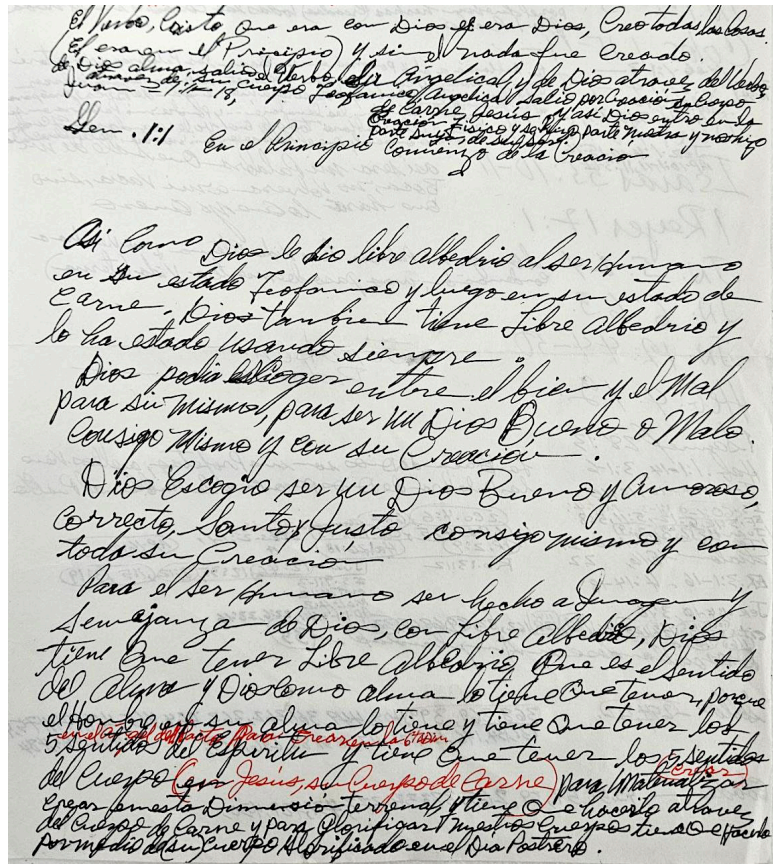 El Verbo, Cristo, Que era con Dios y era Dios, Creo todas las Cosas.
(El era en el Principio) y sin el nada fue creado.
de Dios alma, salio el Verbo, Angelical, y de Dios atravez del Verbo,
Cuerpo Teofanico, Angelical salio por Creación su Cuerpo
de Carne, Jesus, y asi Dios entro en la
Creación
parte suya, fisico y parte nuestra y nos hizo
Gen. 1:1
En el Principio Comienzo de la Creacion
Asi Como Dios le dio libre albedrio al ser Humano
en su estado Teofanico y luego en su estado de
Carne, Dios tambien tiene Libre Albedrio y
lo ha estado usando siempre.
Dios podia escoger entre el bien y el Mal
para si mismo, para ser un Dios Bueno o Malo
Consigo Mismo y con su Creacion.
Dios Escogio ser un Dios Bueno y Amoroso,
Correcto, Santo y Justo consigo mismo y con
toda su Creacion
Para el ser Humano ser hecho a Imagen y
Semejanza de Dios, con Libre Albedrio, Dios
tiene Que tener Libre Albedrio, Que es el sentido
del Alma y Dios como alma lo tiene Que tener, porque
el Hombre en su alma lo tiene y tiene Que tener los
para Crear en la
5 sentidos del Espiritu y tiene Que tener los 5 sentidos
del Cuerpo (en Jesus, su Cuerpo de Carne) para Materializar (Crear)
Crear en esta Dimension terrenal, y tiene Q e hacerlo atravez
del Cuerpo de Carne y para Glorificar nuestros Cuerpos tiene Q e Hacerlo
por medio de su Cuerpo Glorificado en el Dia Postrero.